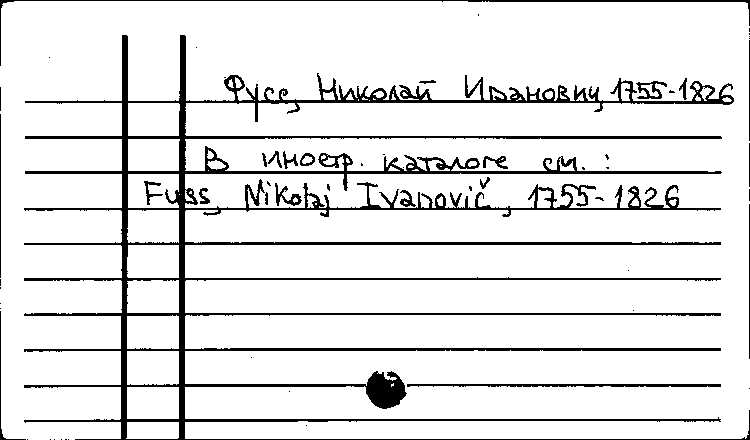 Фусс, Николай Иванович, 1755-1826
В иностр. каталоге см.:
Fuss, Nikolaj Ivanovič, 1755-1826